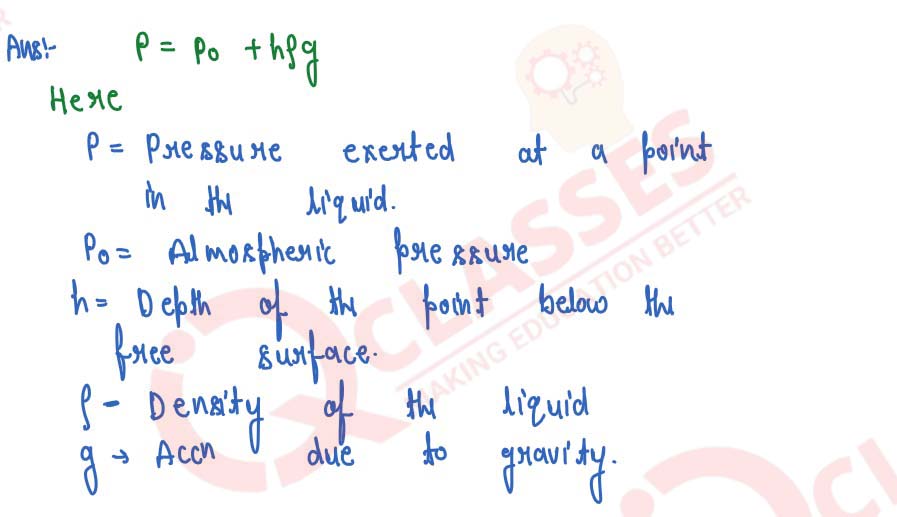 Ans:- P = P₀ + hρg
Here
P = Pressure exerted at a point
in th liquid.
P₀ = Atmospheric pressure
h = Depth of th point below th
free surface.
ρ - Density of th liquid
g → Accn due to gravity.
IQ CLASSES
MAKING EDUCATION BETTER